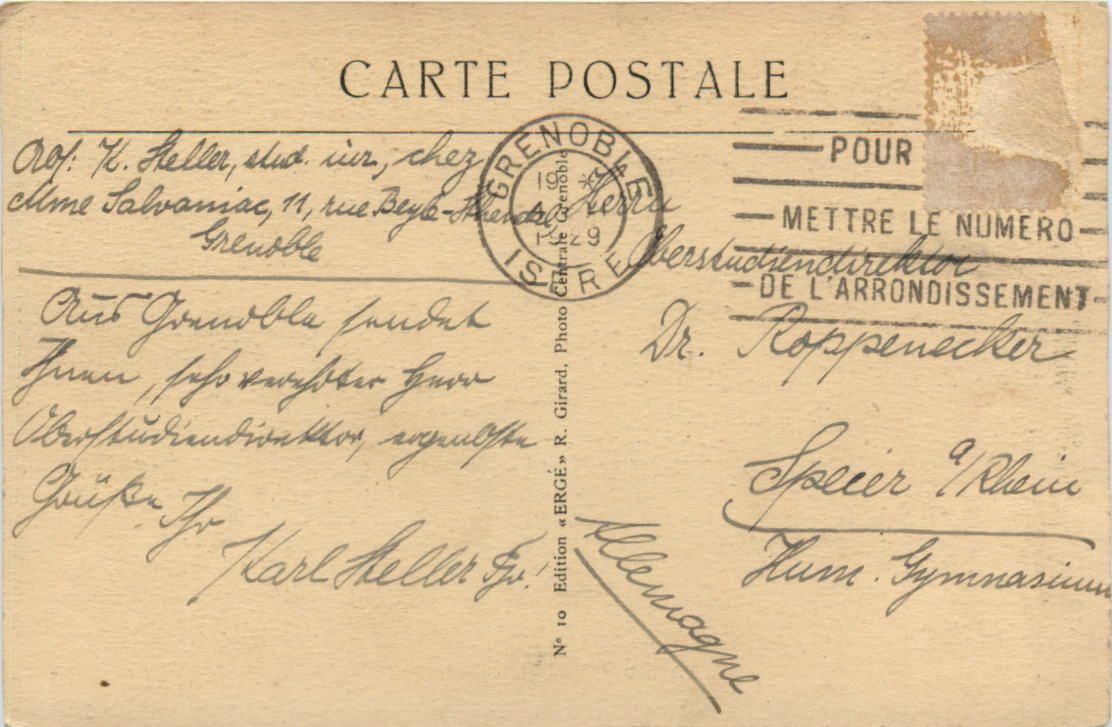 CARTE POSTALE
K. Steller, stud. iur., chez
Mme Salvaniac, 11, rue Beyle-Stendal
Grenoble
Aus Grenoble sendet
Ihnen, sehr verehrter Herr
Oberstudiendirektor, ergebenste
Grüße Ihr
Karl Steller
GRENOBLE
19
1929
ISERE
POUR
METTRE LE NUMERO
DE L'ARRONDISSEMENT
Herrn
Oberstudiendirektor
Dr. Roppenecker
Speier a/Rhein
Hum. Gymnasium
Allemagne
Nº 10 Edition «ERGÉ» R. Girard, Photo Centrale Grenoble